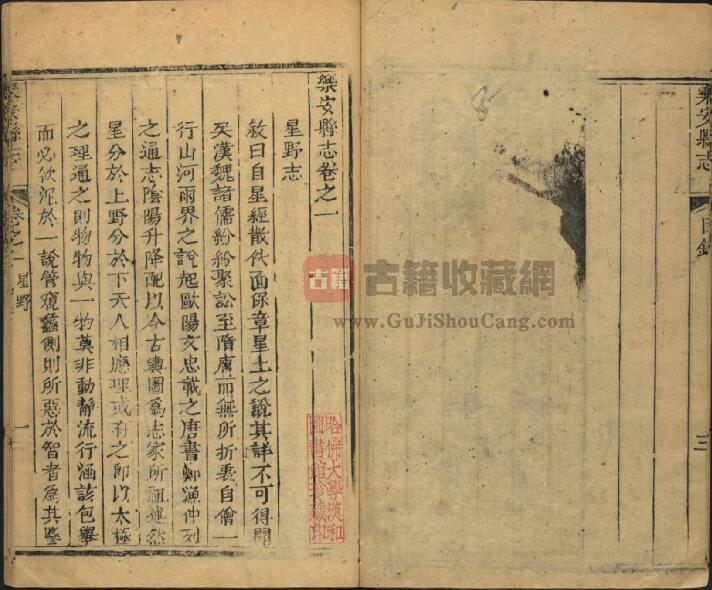 樂安縣志
目錄
三
樂安縣志卷之一
星野志
敘曰自星經散佚而保章星土之說其詳不可得聞
矣漢魏諸儒紛紛聚訟至隋唐而無所折衷自僧一
行山河兩界之說起歐陽文忠載之唐書鄭漁仲列
之通志陰陽升降配以今古輿圖為志家所祖述然
星分於上野分於下天人相應理或有之即以太極
之理通之則物物與一物莫非動靜流行涵該包舉
而必欲泥於一說管窺蠡測則所惡於智者為其鑿
樂安縣志
卷之一
星野
一
哈佛大學漢和
圖書館珍藏印
古籍
古籍收藏網
www.GuJiShouCang.com